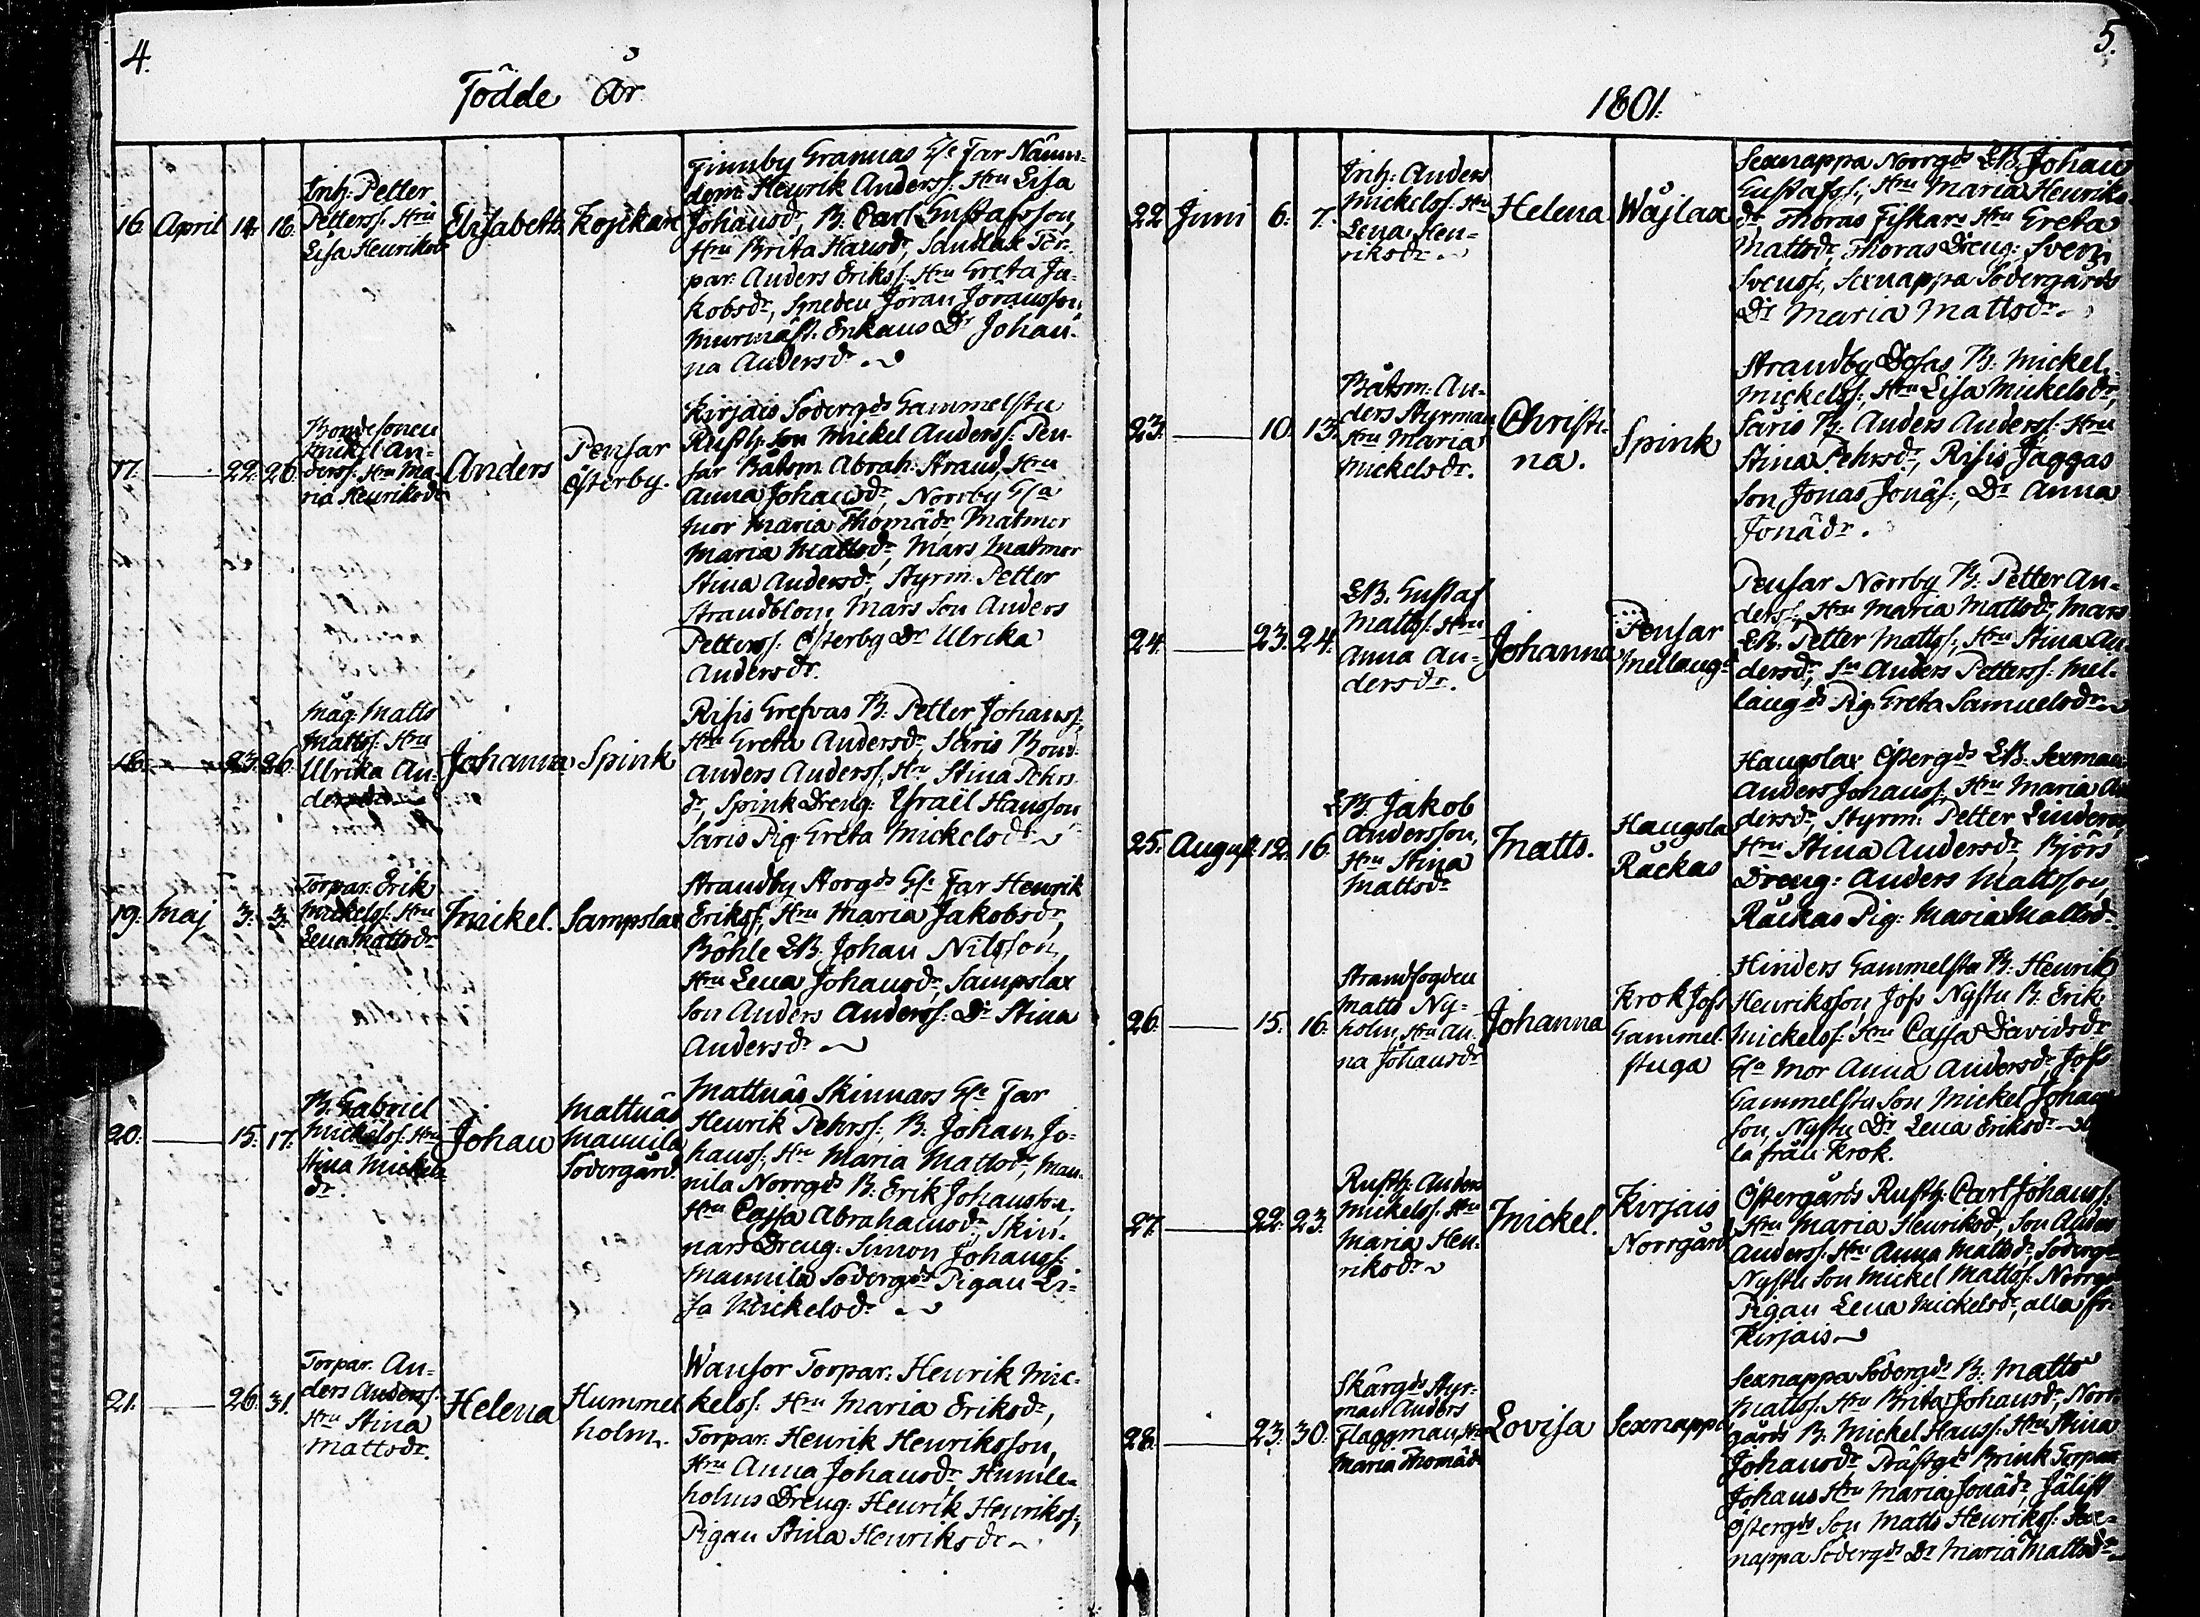 4.
Födde År
16. April 14. 18.
Inh: Petter
Petterss: Hru
Lisa Henriksdr
Elisabeth
Kojikari
Finnby Grannas Gle Far Nämn-
dem: Henrik Anderss: Hru Lisa
Johansdr, B: Carl Gustafsson,
Hru Brita Hansdr, Sandlax Tor-
par: Anders Erikss: Hru Greta Ja-
kobsdr, Smeden Jöran Jöransson,
Murmäst: Enkans Dr Johan-
na Andersdr.
17. 22. 26.
Bondesonen
Mikel An-
derss: Hru Ma-
ria Henriksdr
Anders
Pensar
Österby.
Kirjais Södergds Gammelstu
Rusth: Son Mickel Anderss: Pen-
sar Båtsm: Abrah: Strand, Hru
Anna Johansdr, Norrby Gla
Mor Maria Thomädr Matmor
Maria Mattsdr, Mars Matmor
Stina Andersdr, Styrm: Petter
Strandblom, Mars Son Anders
Petterss: Österby Dr Ulrika
Andersdr.
18. 23. 26.
Måg: Matts
Mattss: Hru
Ulrika An-
dersdr
Johanna
Spink
Risis Grefvas B: Petter Johanss,
Hru Greta Andersdr, Saris Bond:
Anders Anderss, Hru Stina Pehrs
dr, Spink Dreng: Israël Hansson
Saris Pig: Greta Mickelsdr
19. Maj 3. 3.
Torpar: Erik
Mickelss: Hru
Lena Mattsdr
Mickel.
Sampslax
Strandby Storgds Gle Far Henrik
Erikss, Hru Maria Jakobsdr,
Böhle LB. Johan Nilsson,
Hru Lena Johansdr, Sampslax
Son Anders Anderss: Dr Stina
Andersdr
20. 15. 17.
B: Gabriel
Mickelss: Hru
Stina Mickels-
dr.
Johan
Mattnäs
Mannila
Södergård
Mattnäs Skinnars Gle Far
Henrik Pehrss:, B: Johan Jo-
hanss:, Hru Maria Mattsdr, Man-
nila Norrgds B: Erik Johansson,
Hru Cajsa Abrahamsdr, Skin-
nars Dreng: Simon Johanss:
Mannila Södergds Pigan Li-
sa Mickelsdr
21. 26. 31.
Torpar: An-
ders Anderss:
Hru Stina
Mattsdr.
Helena
Hummel
holm.
Wansor Torpar: Henrik Mic-
kelss: Hru Maria Eriksdr,
Torpar: Henrik Henriksson,
Hru Anna Johansdr Humle-
holms Dreng: Henrik Henrikss:,
Pigan Stina Henriksdr
5.
1801.
22 Juni 6. 7.
Inh: Anders
Mickelss: Hru
Lena Hen-
riksdr
Helena
Wåjlax
Sexnappa Norrgds LB. Johan
Gustafss:, Hru Maria Henriks
dr, Thoras Fiskars Hru Greta
Mattsdr, Thoras Dreng: Sven
Svenss:, Sexnappa Södergårds
Dr Maria Mattsdr.
23. 10. 13.
Båtsm: An-
ders Styrman
Hru Maria
Mickelsdr.
Christi-
na.
Spink
Strandby Dosas B: Mickel
Mickelss:, Hru Lisa Mickelsdr,
Saris B: Anders Anderss: Hru
Stina Pehrsdr, Risis Jaggas
Son Jonas Jonäs:, Dr Anna
Jonädr.
24. 23. 24.
LB. Gustaf
Mattss: Hru
Anna An-
dersdr.
Johanna
Pensar
Mellangd
Pensar Norrby B: Petter An-
derss:, Hru Maria Mattsdr Mars
LB. Petter Mattss:, Hru Stina An-
dersdr, Sn Anders Petterss: Mel-
langds Pig: Greta Samuelsdr
25. August 12. 16.
LB. Jakob
Andersson,
Hru Stina
Mattsdr
Matts.
Haugsla
Räckas
Haugslax Östergds LB: Sexman
Anders Johanss: Hru Maria An
dersdr, Styrm: Petter Linderos,
Hru Stina Andersdr, Björs
Dreng: Anders Mattsson,
Räckas Pig: Maria Mattsdr
26. 15. 16.
Strandfogden
Matts Ny-
holm, Hru An-
na Johansdr
Johanna
Krok Jofs
Gammel-
stuga
Hinders Gammelsta B: Henrik
Henriksson, Jofs Nystu B: Erik
Mickelss: Hru Cajsa Davidsdr
Gla Mor Anna Andersdr, Jofs
Gammelstu Son Mickel Johan
son, Nystu Dr Lena Eriksdr
la från Krok.
27. 22. 23.
Rusth: Anders
Mickelss: Hru
Maria Hen-
riksdr
Mickel.
Kirjais
Norrgård
Östergårds Rusth: Carl Johanss:
Hru Maria Henriksdr, Son Anders
Anderss: Hru Anna Mattsdr, Söderg
Nystu Son Mickel Mattss: Norrgd
Pigan Lena Mickelsdr, alla fr:
Kirjais
28. 23. 30.
Skärgds Styr-
man Anders
Flaggman, Hru
Maria Thomädr
Lovisa
Sexnappa
Sexnappa Södergds B: Matts
Mattss: Hru Brita Johansdr, Norr-
gårds B: Mickel Hanss: Hru Stina
Johansdr Prästgds Brink Torpar
Johans Hru Maria Jonädr, Jälist
Östergds Son Matts Henrikss: Sex-
nappa Södergds Dr Maria Mattsdr